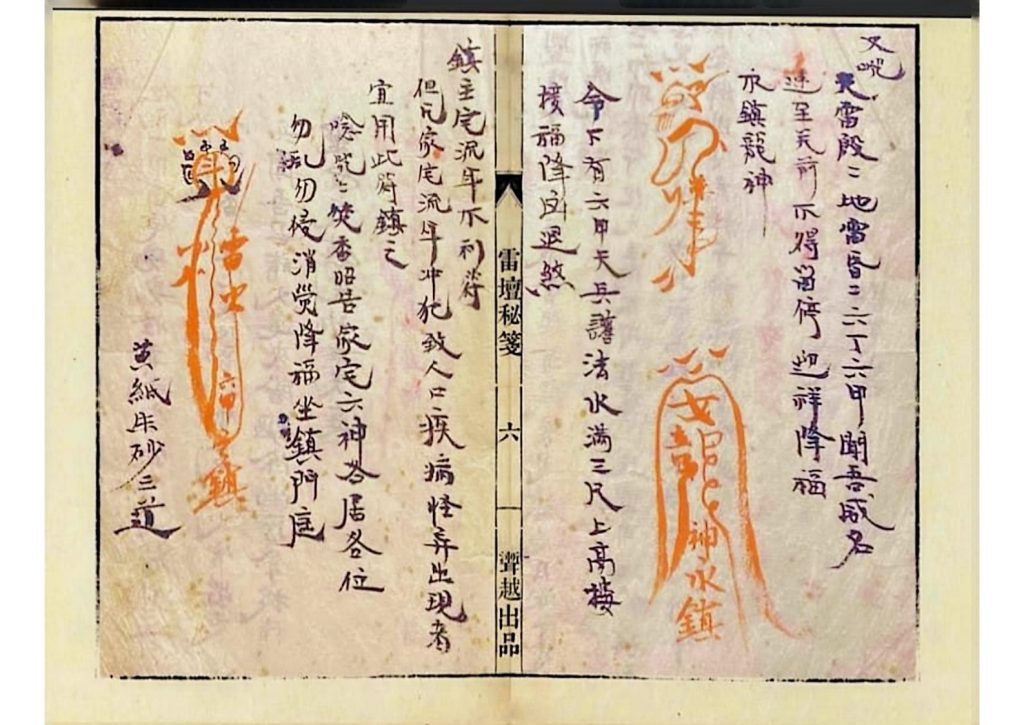 又咒
天雷殷二地雷昏二六丁六甲聞吾咸名
速至关前不得留停迎祥降福
永鎮龍神
神永鎮
令下有六甲天兵護法水滿三尺上高楼
接福降凶退煞
雷壇秘箋
六
聾越出品
鎮主宅流年不利符
但凡家宅流年冲犯致人口疾病怪弄出現者
宜用此符鎮之
唸咒二焚香昭告家宅六神各居各位
勿乱勿侵消灾降福坐鎮門庭
雷
六甲
鎮
黄紙朱砂二道